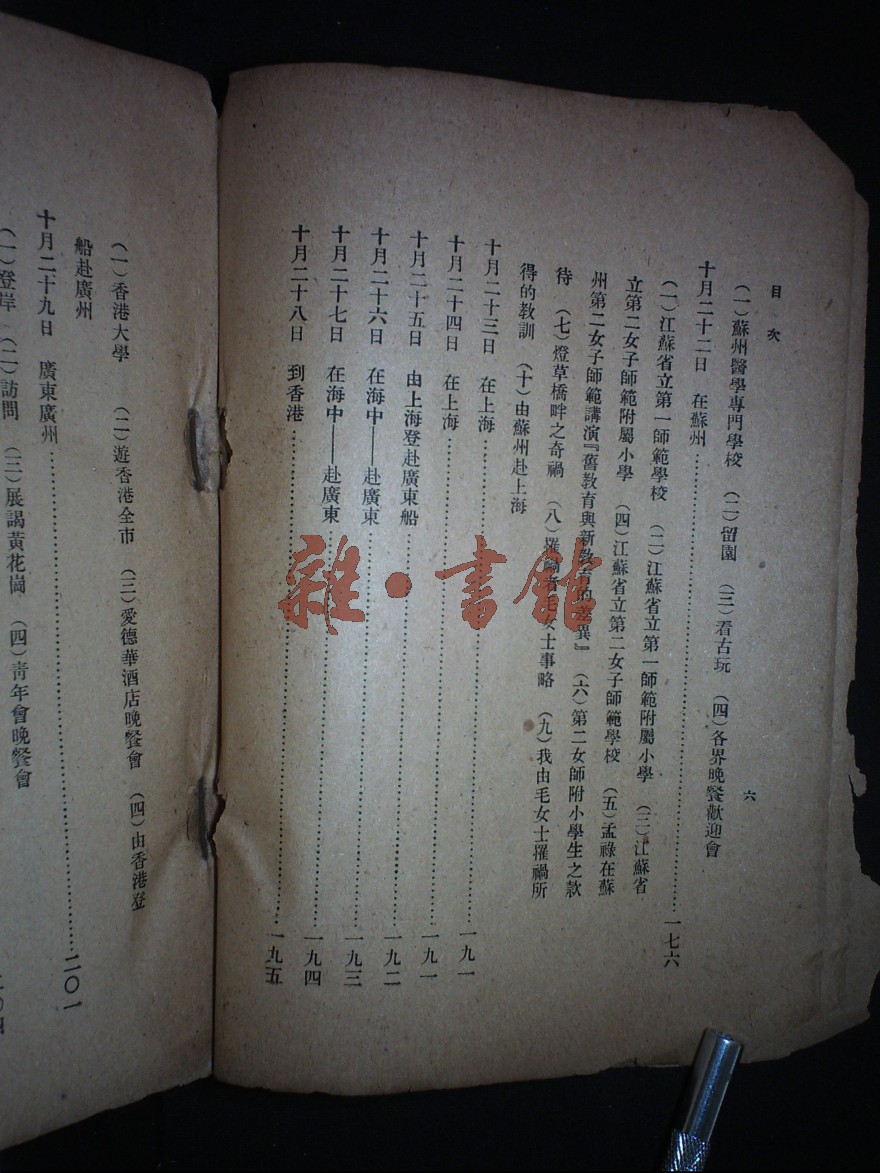 目次
六
(一)蘇州醫學專門學校 (二)留園 (三)看古玩 (四)各界晚餐歡迎會
十月二十二日 在蘇州……一七六
(一)江蘇省立第一師範學校 (二)江蘇省立第一師範附屬小學 (三)江蘇省
立第二女子師範附屬小學 (四)江蘇省立第二女子師範學校 (五)孟祿在蘇
州第二女子師範講演『舊教育與新教育的差異』 (六)第二女師附小學生之款
待 (七)燈草橋畔之奇禍 (八)罹禍者毛女士事略 (九)我由毛女士罹禍所
得的教訓 (十)由蘇州赴上海
十月二十三日 在上海……一九一
十月二十四日 在上海……一九一
十月二十五日 由上海登赴廣東船……一九二
十月二十六日 在海中——赴廣東……一九三
十月二十七日 在海中——赴廣東……一九四
十月二十八日 到香港……一九五
(一)香港大學 (二)遊香港全市 (三)愛德華酒店晚餐會 (四)由香港登
船赴廣州
十月二十九日 廣東廣州……二〇一
(一)登岸 (二)訪問 (三)展謁黃花崗 (四)青年會晚餐會
雜·書館